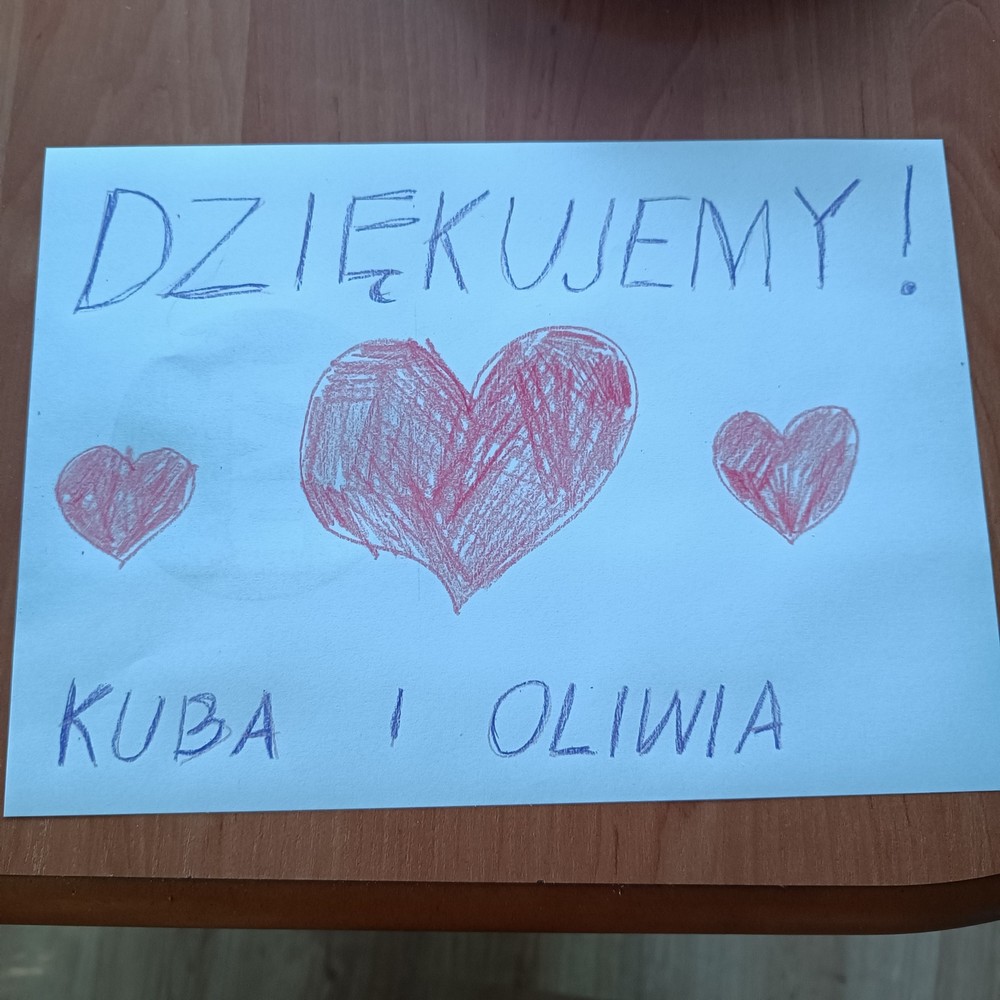 DZIĘKUJEMY!
KUBA I OLIWIA